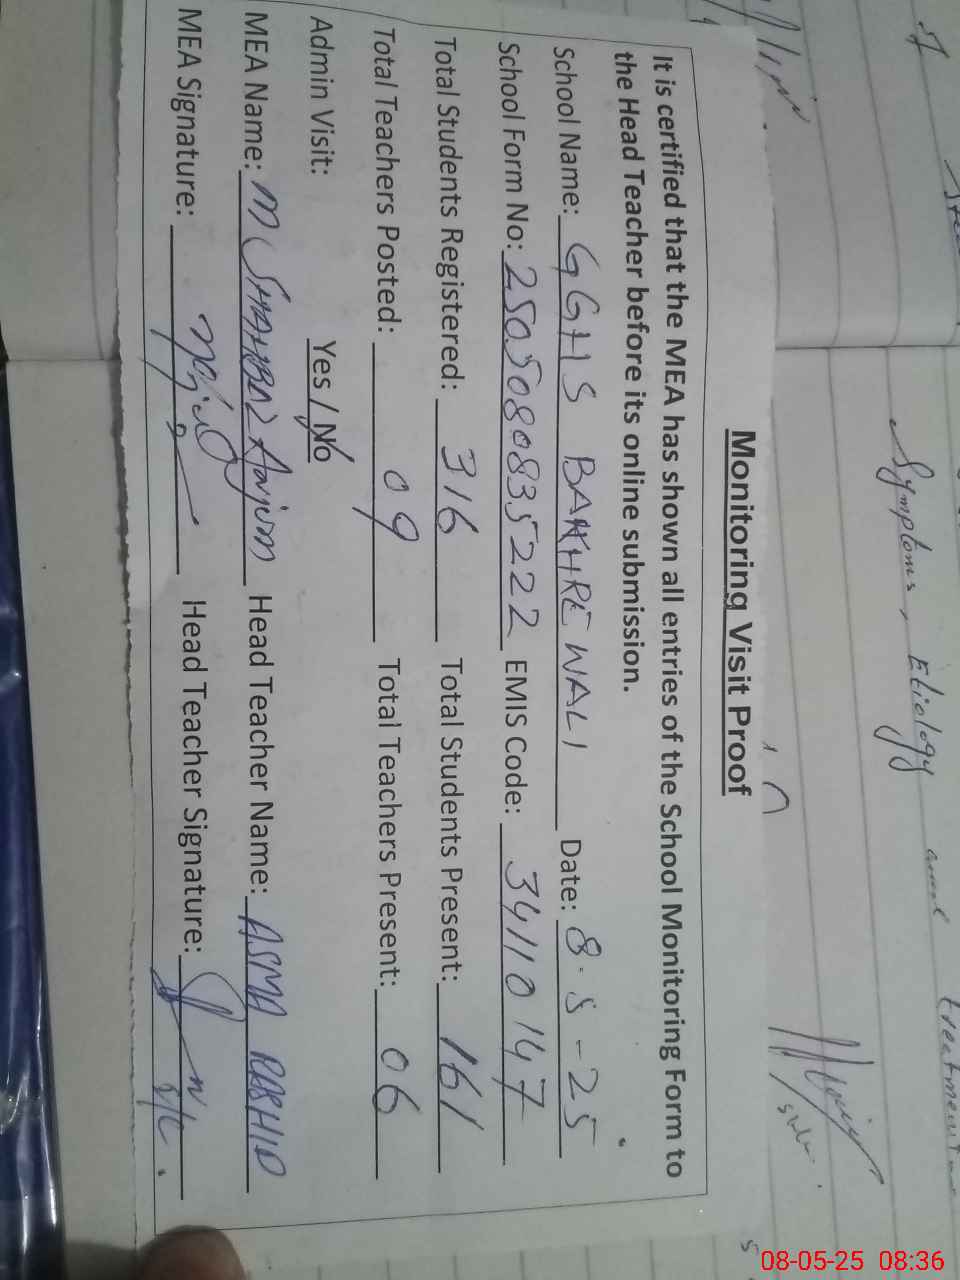 Monitoring Visit Proof
It is certified that the MEA has shown all entries of the School Monitoring Form to
the Head Teacher before its online submission.
School Name: GGHS BAKHRE WALI Date: 8-5-25
School Form No: 2505080835222 EMIS Code: 34110147
Total Students Registered: 316 Total Students Present: 161
Total Teachers Posted: 09 Total Teachers Present: 06
Admin Visit: Yes / No
MEA Name: M SHAHBAZ Anjum Head Teacher Name: ASMA RASHID
MEA Signature: Head Teacher Signature:
Symptoms, Etiology and treatment
08-05-25 08:36